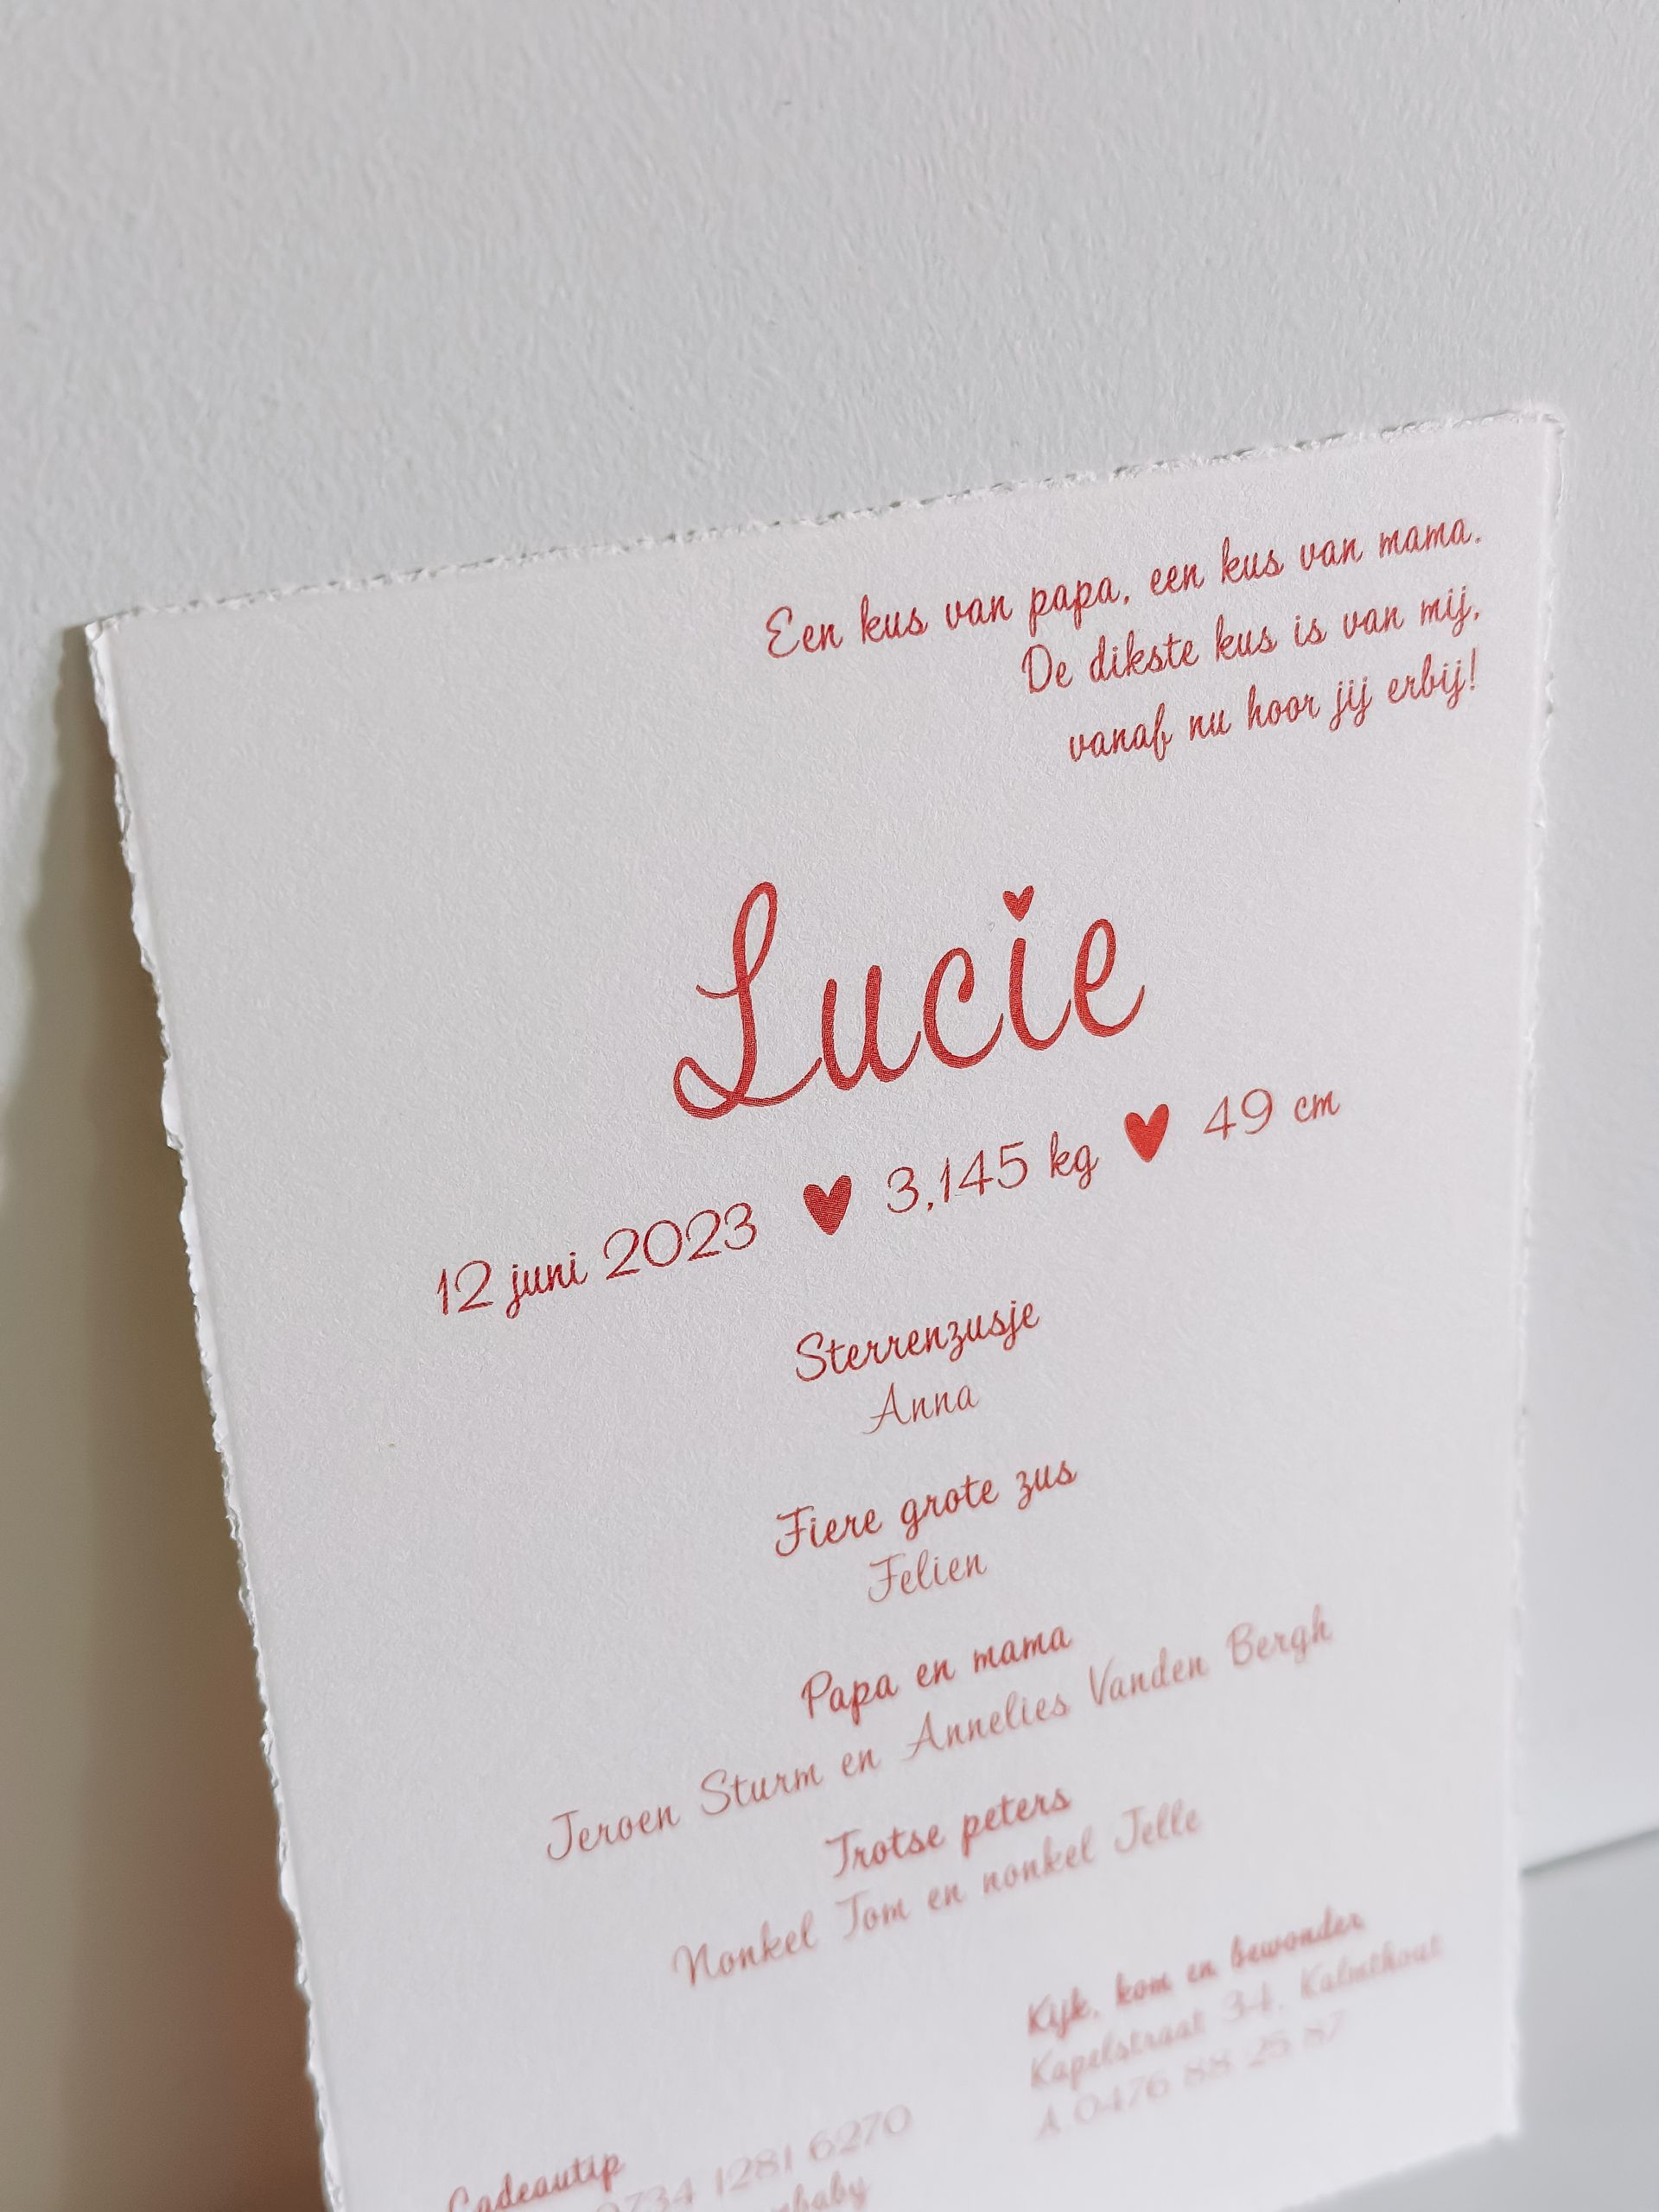 Een kus van papa, een kus van mama.
De dikste kus is van mij,
vanaf nu hoor jij erbij!
Lucie
12 juni 2023 ♥ 3,145 kg ♥ 49 cm
Sterrenzusje
Anna
Fiere grote zus
Felien
Papa en mama
Jeroen Sturm en Annelies Vanden Bergh
Trotse peters
Nonkel Tom en nonkel Jelle
Kijk, kom en bewonder
Kapelstraat 34, Kalmthout
A 0476 88 25 87
Cadeautip
0734 1281 6270